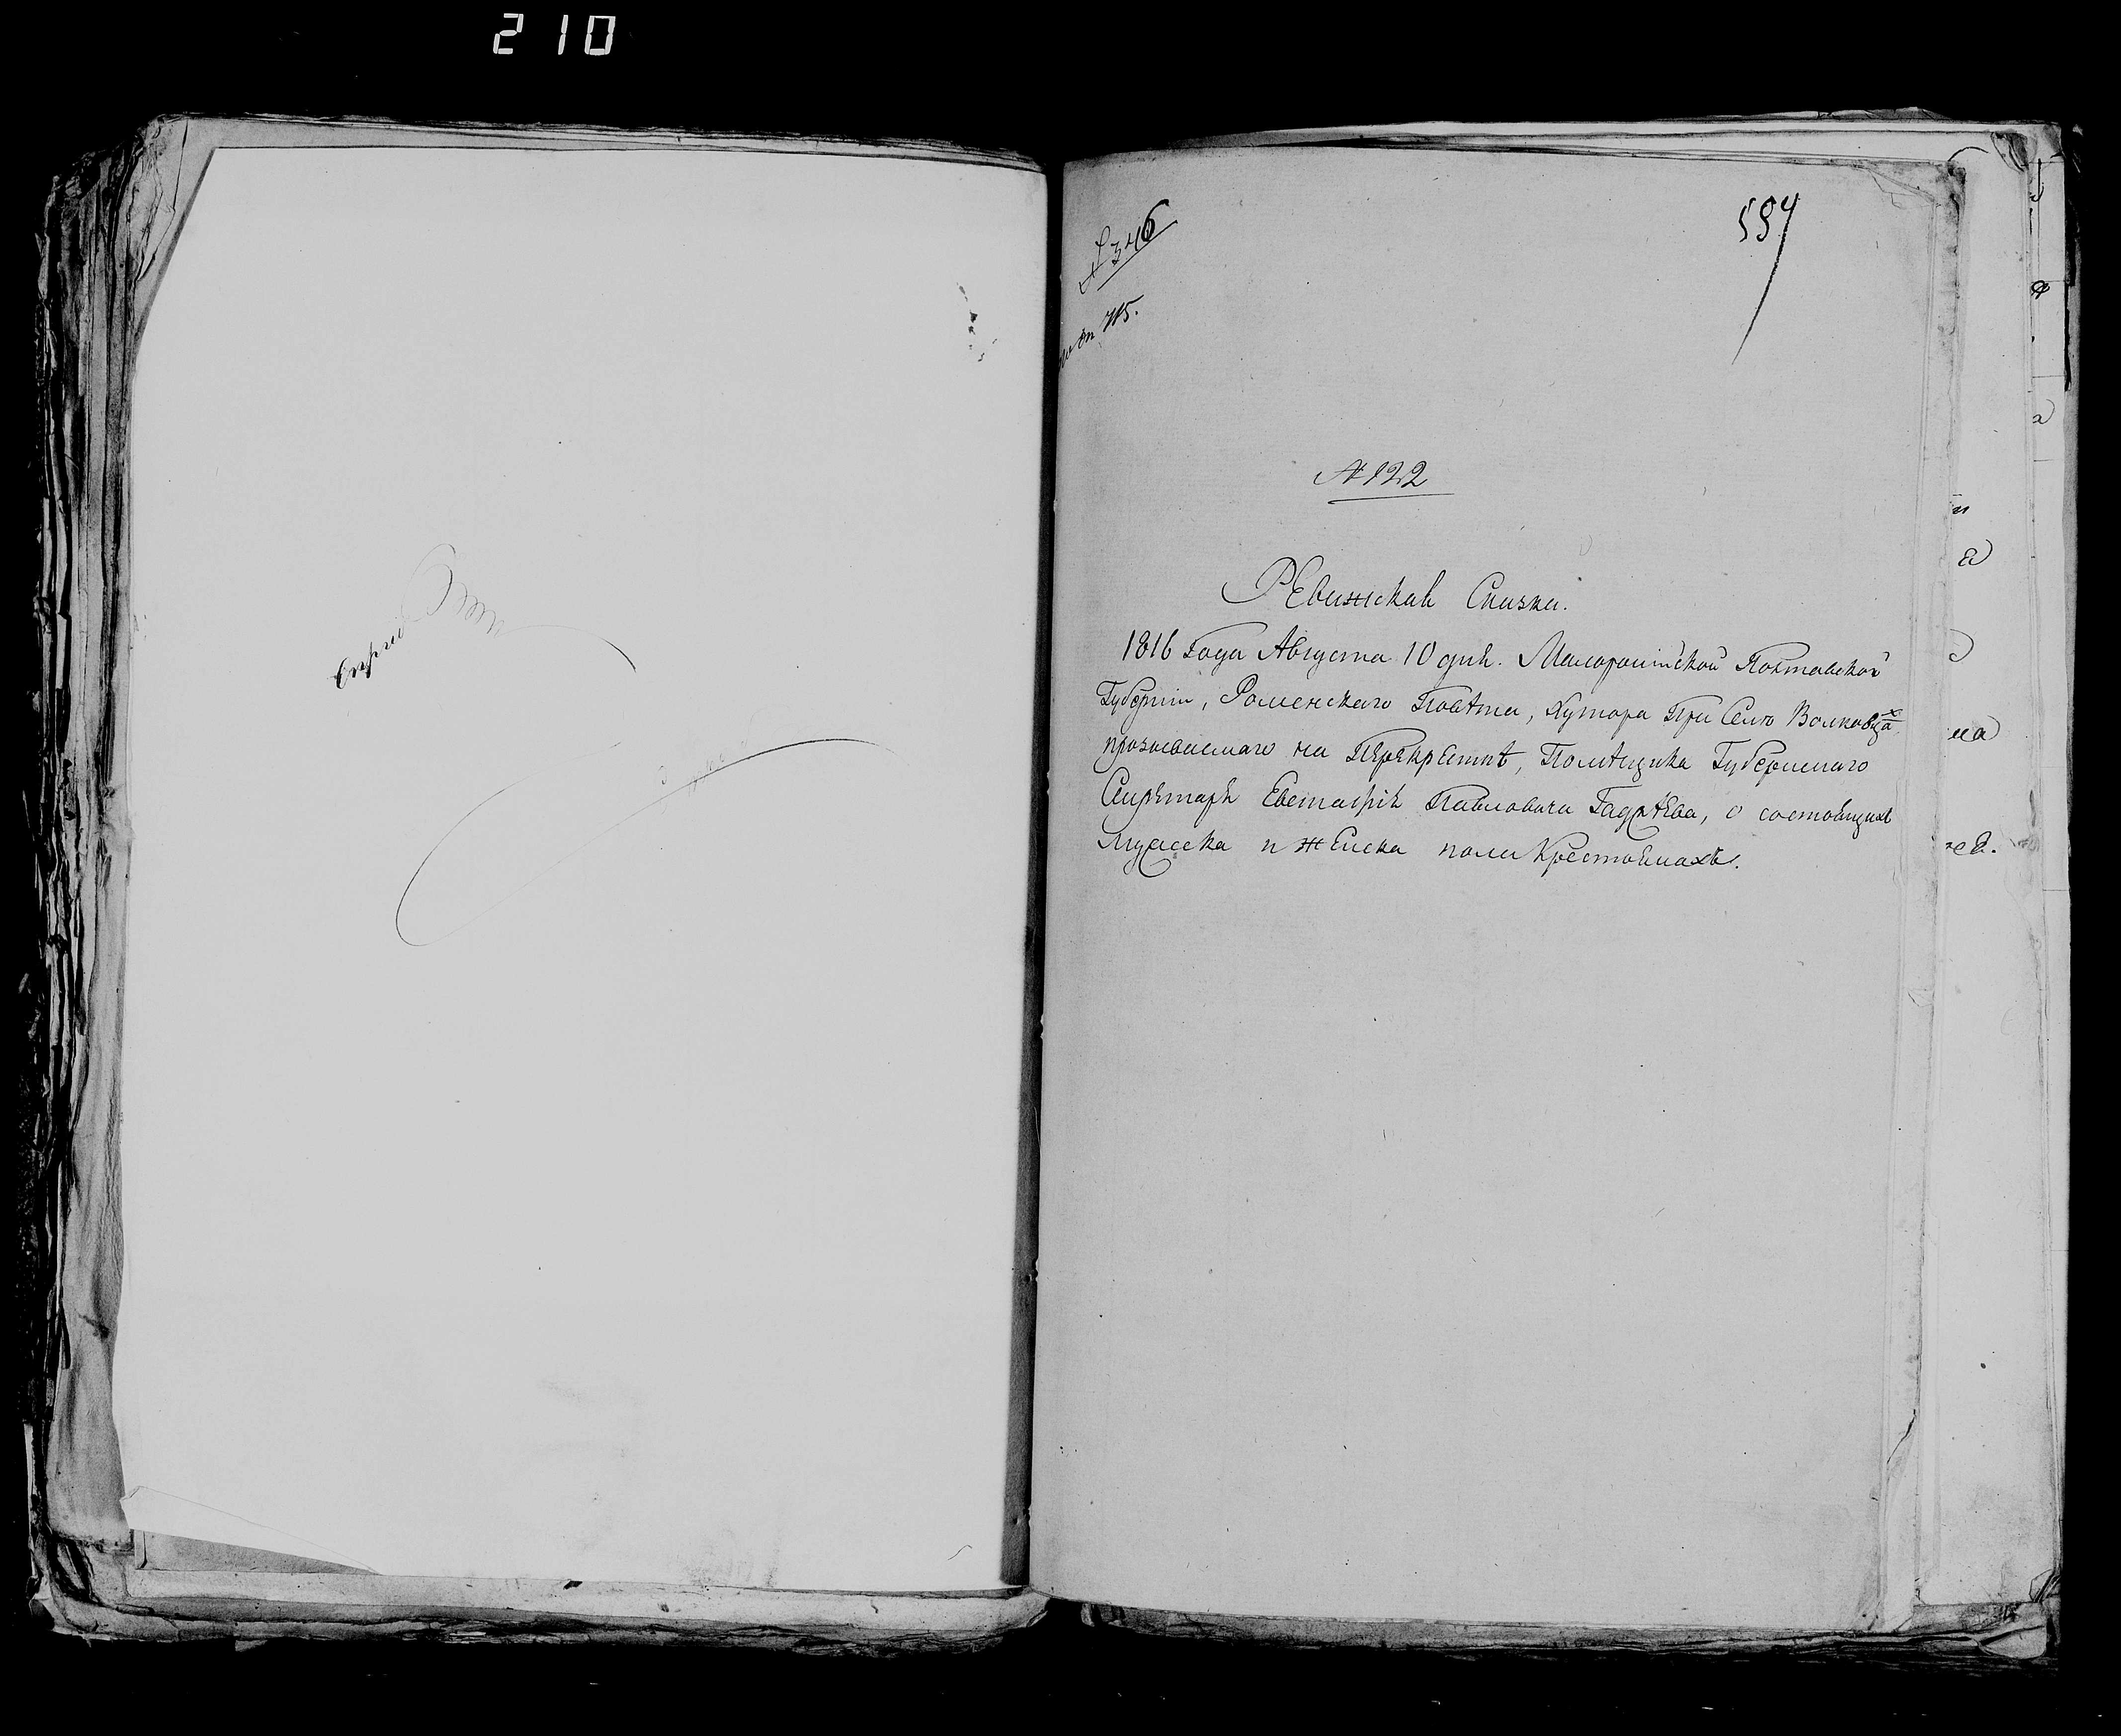 210
№ 346
594
№ 122
Ревижская Сказка.
1816 Года Августа 10 дня. Малороссійской Полтавской
Губерніи, Роменского Повѣта, Хутора При Селѣ Волковцахъ
прозываемаго на Перекрестѣ, Помѣщика Губернскаго
Секретаря Евстафія Павловича Гадяева, о состоящихъ
мужеска и женска пола Крестьянахъ.